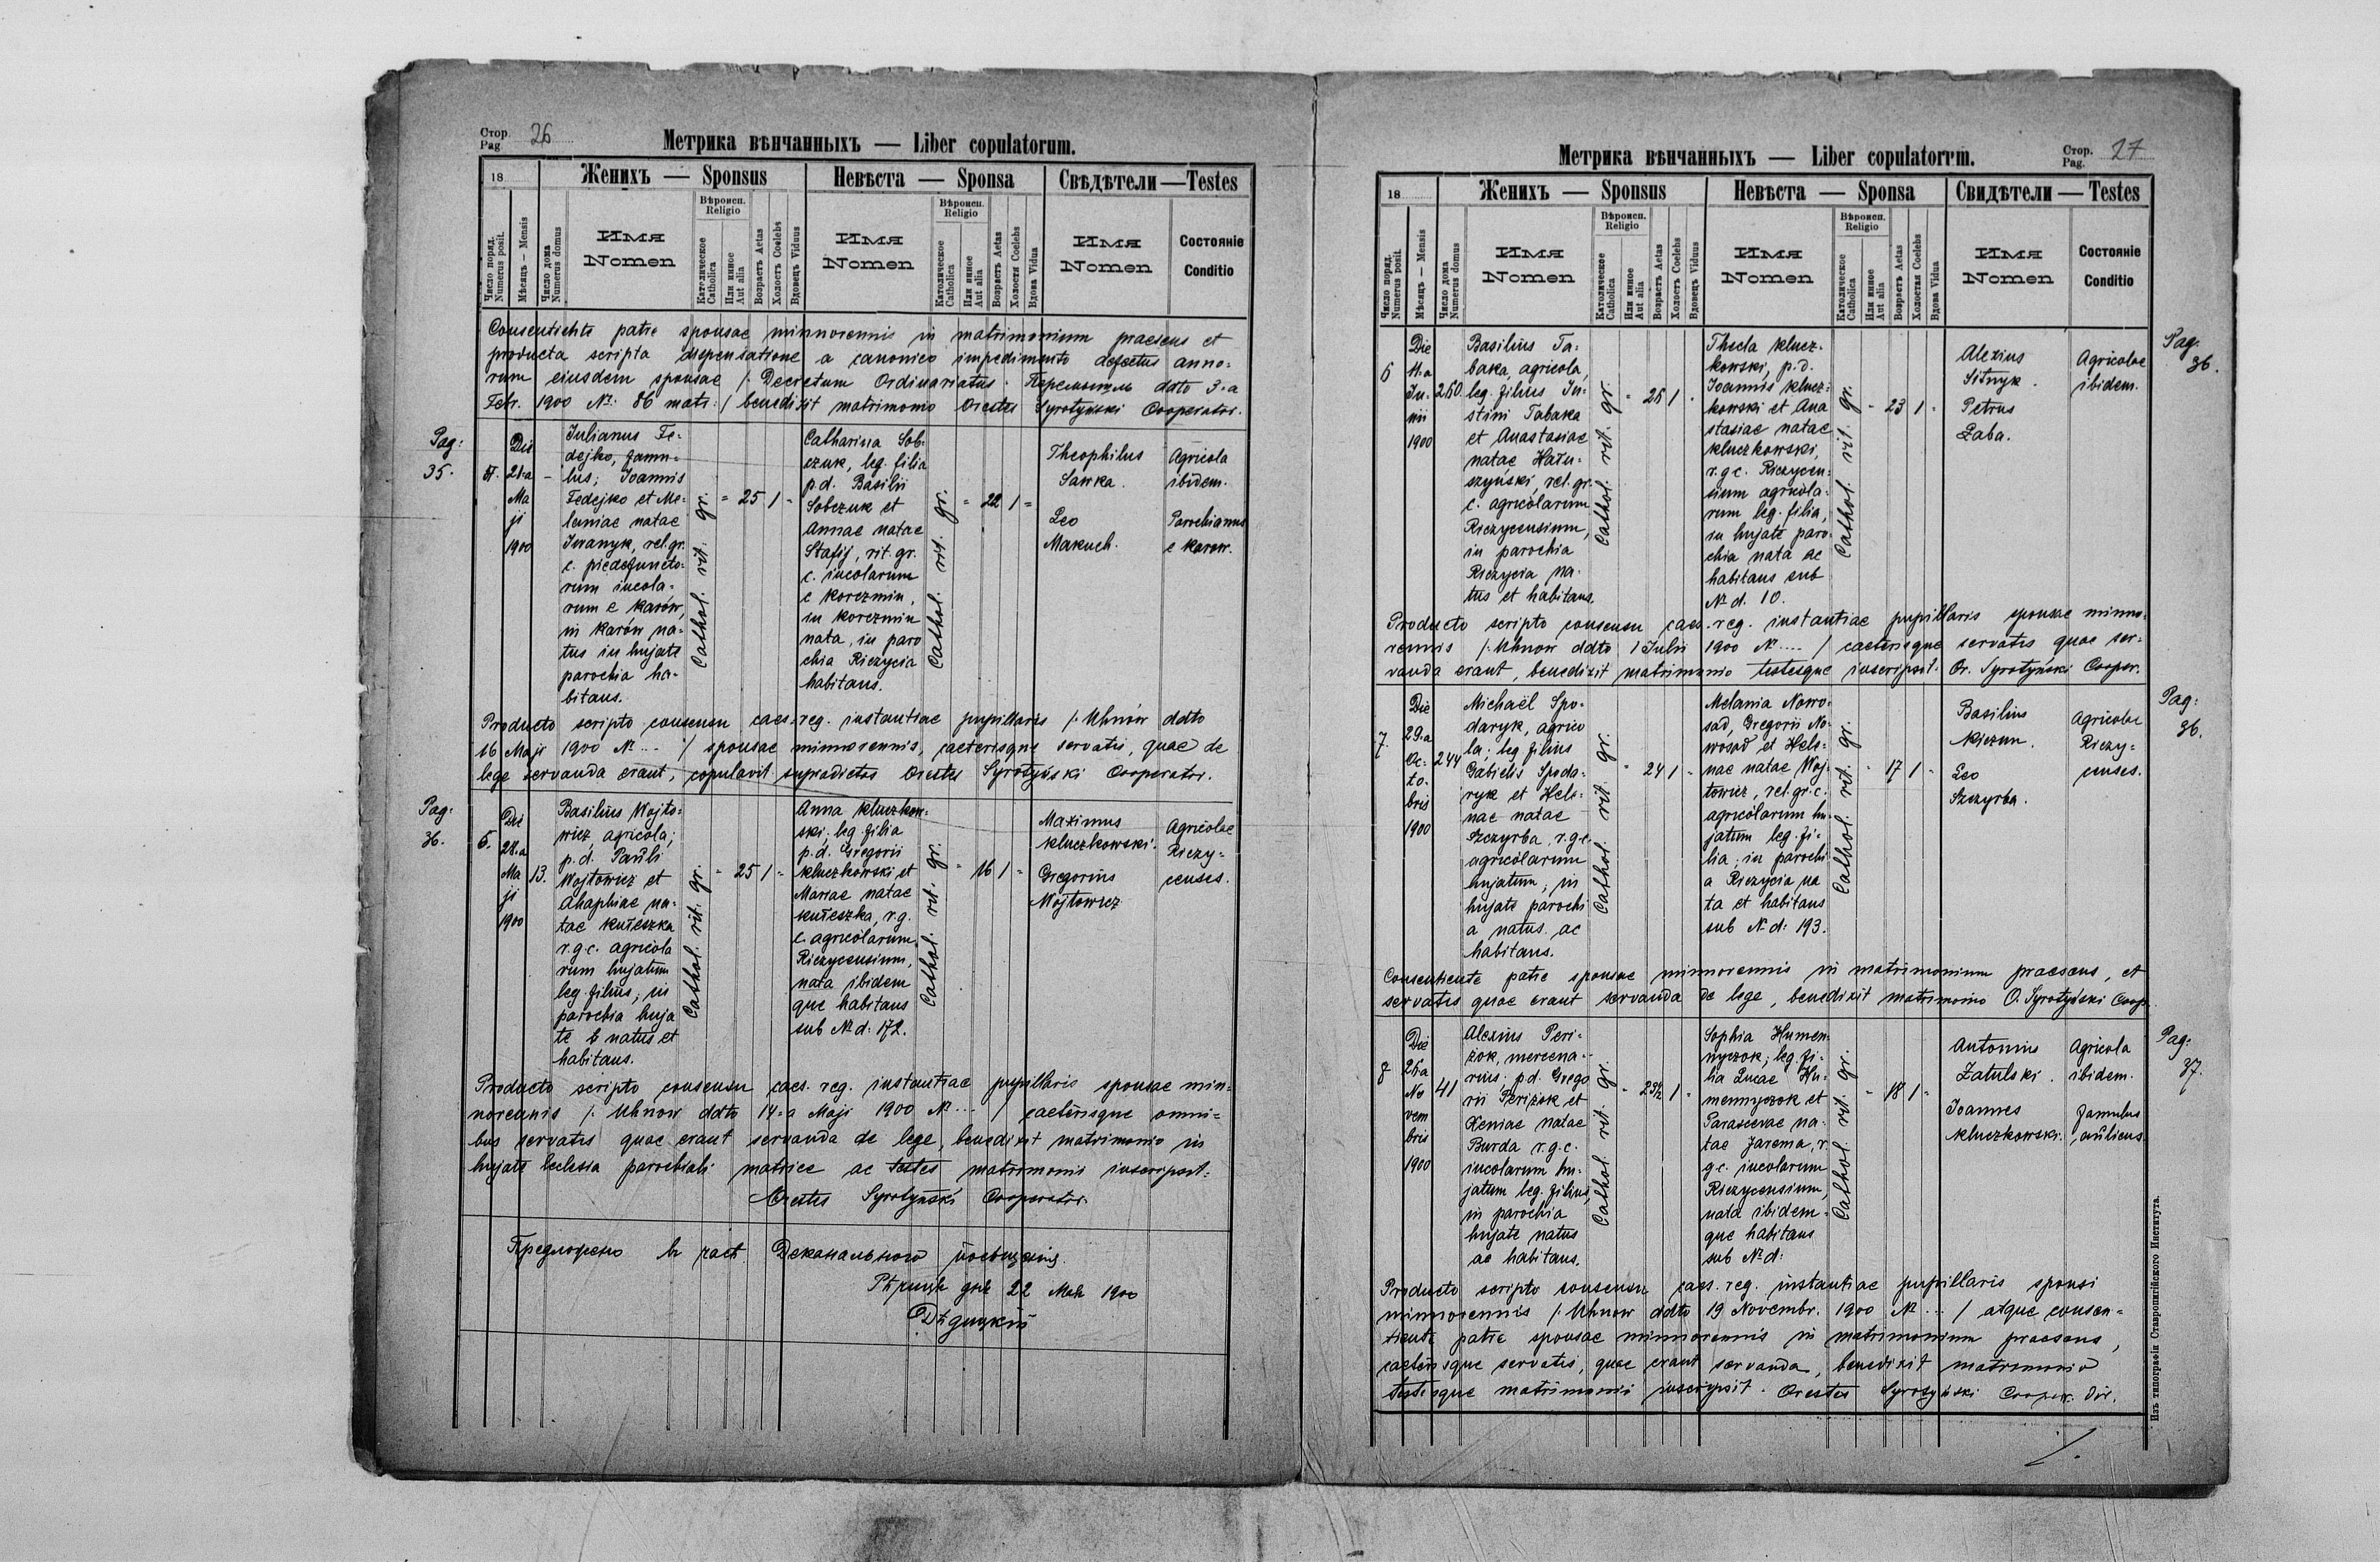 Стор.
Pag. 26
Метрика вѣнчанныхъ — Liber copulatorum.
18
Женихъ — Sponsus
Невѣста — Sponsa
Свѣдѣтели — Testes
Число поряд.
Numerus posit.
Мѣсяцъ — Mensis
Число дома
Numerus domus
Имя
Nomen
Вѣроисп.
Religio
Католическое
Catholica
Или иное
Aut alia
Возрастъ Aetas
Холостъ Coelebs
Вдовецъ Viduus
Имя
Nomen
Вѣроисп.
Religio
Католическое
Catholica
Или иное
Aut alia
Возрастъ Aetas
Холостя Coelebs
Вдова Vidua
Имя
Nomen
Состояніе
Conditio
Consentiente patre sponsae minnorennis in matrimonium praesens et
producta scripta dispensatione a canonico impedimento defectus anno-
rum eiusdem sponsae /: Decretum Ordinariatus Перемышль ddto 3.a
Febr. 1900 No: 86 matr: / benedixit matrimonio Orestes Syrotyński Cooperator.
Pag:
35.
Die
21.a
Ma
ji
1900
Iulianus Fe-
dejko, famu-
lus; Ioannis
Fedejko et Me-
laniae natae
Iwanyk, rel. gr.
c. piedefuncto-
rum incola-
rum e Karów,
in Karów na-
tus in hujate
parochia ha-
bitans.
Cathol. rit. gr.
25 1
Catharina Sob-
czuk, leg. filia
p. d. Basilii
Sobczuk et
Annae natae
Stafij, rit. gr.
c. incolarum
e Korczmin,
in Korczmin
nata, in paro
chia Rieczycia
habitans.
Cathol. rit. gr.
22 1
Theophilus
Sawka.
Leo
Makuch.
Agricola
ibidem.
Parochianus
e Karow.
Producto scripto consensu caes.-reg. instantiae pupillaris /: Uhnów ddto
16 Maji 1900 No ... / sponsae minnorennis, caeterisque servatis, quae de
lege servanda erant, copulavit supradictos Orestes Syrotyński Cooperator.
Pag:
36.
5.
Die
28.a
Ma
ji
1900
13.
Basilius Wojto-
wicz, agricola;
p. d. Pauli
Wojtowicz et
Ahaphiae na-
tae Kułeszka
r. g. c. agricola
rum hujatum
leg. filius; in
parochia huja
te natus et
habitans.
Cathol. rit. gr.
25 1
Anna Kluczkow-
ski; leg. filia
p. d. Gregorii
Kluczkowski et
Mariae natae
Kułeszka, r. g.
c. agricolarum
Rieczycensium,
nata ibidem
que habitans
sub No d: 172.
Cathol. rit. gr.
16 1
Maximus
Kluczkowski.
Gregorius
Wojtowicz
Agricolae
Rieczy-
censes.
Producto scripto consensu caes. reg. instantiae pupillaris sponsae min-
norennis /: Uhnow ddto 14.a Maji 1900 No ... / caeterisque omni-
bus servatis quae erant servanda de lege, benedixit matrimonio in
hujate Ecclesia parochiali matrice ac testes matrimonii inscripsit:
Orestes Syrotyński Cooperator.
Предложено въ часѣ Деканального посѣщенія.
Рѣчица дня 22 Мая 1900
Стор.
Pag. 27
Метрика вѣнчанныхъ — Liber copulatorrm.
18
Женихъ — Sponsus
Невѣста — Sponsa
Свидѣтели — Testes
Число поряд.
Numerus posit.
Мѣсяцъ — Mensis
Число дома
Numerus domus
Имя
Nomen
Вѣроисп.
Religio
Католическое
Catholica
Или иное
Aut alia
Возрастъ Aetas
Холостъ Coelebs
Вдовецъ Viduus
Имя
Nomen
Вѣроисп.
Religio
Католическое
Catholica
Или иное
Aut alia
Возрастъ Aetas
Холостая Coelebs
Вдова Vidua
Имя
Nomen
Состояніе
Conditio
6
Die
11.a
Ju-
nii
1900
Basilius Ta-
baka, agricola,
leg. filius Ju-
stini Tabaka
et Anastasiae
natae Hału-
szyński, rel. gr.
c. agricolarum
Rieczycensium,
in parochia
Rieczycia na-
tus et habitans.
Cathol. rit. gr.
Thecla Klucz-
kowski, p. d.
Ioannis Klucz-
kowski et Ana
stasiae natae
Kluczkowski,
r. g. c. Rieczycen-
sium agricola-
rum leg. filia,
in hujate paro-
chia nata ac
habitans sub
No d. 10.
Cathol. rit. gr.
23 1
Alexius
Sitnyk.
Petrus
Żaba.
Agricolae
ibidem.
Pag:
36.
Producto scripto consensu caes.-reg. instantiae pupillaris sponsae minno-
rennis /: Uhnow ddto 1 Iulii 1900 No .... / caeterisque servatis quae ser-
vanda erant, benedixit matrimonio testesque inscripsit. Or. Syrotyński Cooper.
7.
Die
29.a
Oc-
to-
bris
1900
244
Michaël Spo-
daryk, agrico
la; leg. filius
Gabielis Spoda-
ryk et Hele-
nae natae
Szczyrba, r. g. c.
agricolarum
hujatum; in
hujate parochi
a natus ac
habitans.
Cathol. rit. gr.
24 1
Melania Nowo-
sad, Gregorii No-
wosad et Hele-
nae natae Woj-
towicz, rel. gr. c.
agricolarum hu-
jatum leg. fi-
lia; in parochi
a Rieczycia na
ta et habitans
sub N. d: 193.
Cathol. rit. gr.
17 1
Basilius
Leo
Szczyrba.
Agricolae
Rieczy-
censes.
Pag:
36.
Consentiente patre sponsae minnorennis in matrimonium praesens, et
servatis quae erant servanda de lege, benedixit matrimonio O. Syrotyński Coop.
8
Die
No
vem
bris
1900
41
Alexius Peri-
żok, mercena-
rius; p. d. Grego
rii Periżok et
Xeniae natae
Burda r. g. c.
incolarum hu-
jatum leg. filius,
in parochia
hujate natus
ac habitans.
Cathol. rit. gr.
Sophia Humen-
nyczok; leg. fi-
lia Lucae Hu-
mennyczok et
Parascevae na-
tae Jarema, r.
g. c. incolarum
Rieczycensium,
nata ibidem-
que habitans
sub No d:
Cathol. rit. gr.
18 1
Antonius
Zatulski.
Ioannes
Kluczkowski.
Agricola
ibidem.
famulus
aulicus.
Pag:
37.
Producto scripto consensu caes. reg. instantiae pupillaris sponsi
minnorennis /: Uhnow ddto 19 Novembr. 1900 No ... / atque consen-
tiente patre sponsae minnorennis in matrimonium praesens,
caeterisque servatis, quae erant servanda, benedixit matrimonio
testesque matrimonii inscripsit. Orestes Syrotyński Cooper.
Изъ типографіи Ставропигійского Института.